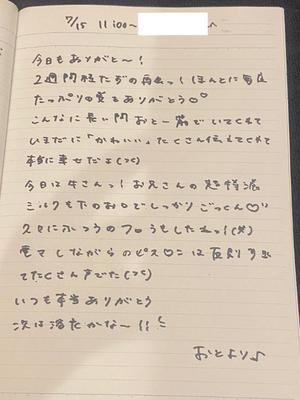 7/15 11:00~ ♪
今日もありがと〜!
2週間経たずの再会っ! ほんとに毎度
たっぷりの愛をありがとう♡
こんなに長い間おと一筋でいてくれて
いまだに「かわいい」たくさん伝えてくれて
本当に幸せだよ
今日は牛さんっ! お兄さんの超特濃
ミルクも下のお口でしっかりごっくん♡
久々にふつうのフロうもしたねっ!(笑)
しながらのピス♡ンは反則
てたくさん声でた
いつも本当ありがとう
次は浴衣かな〜!!
おとより♪